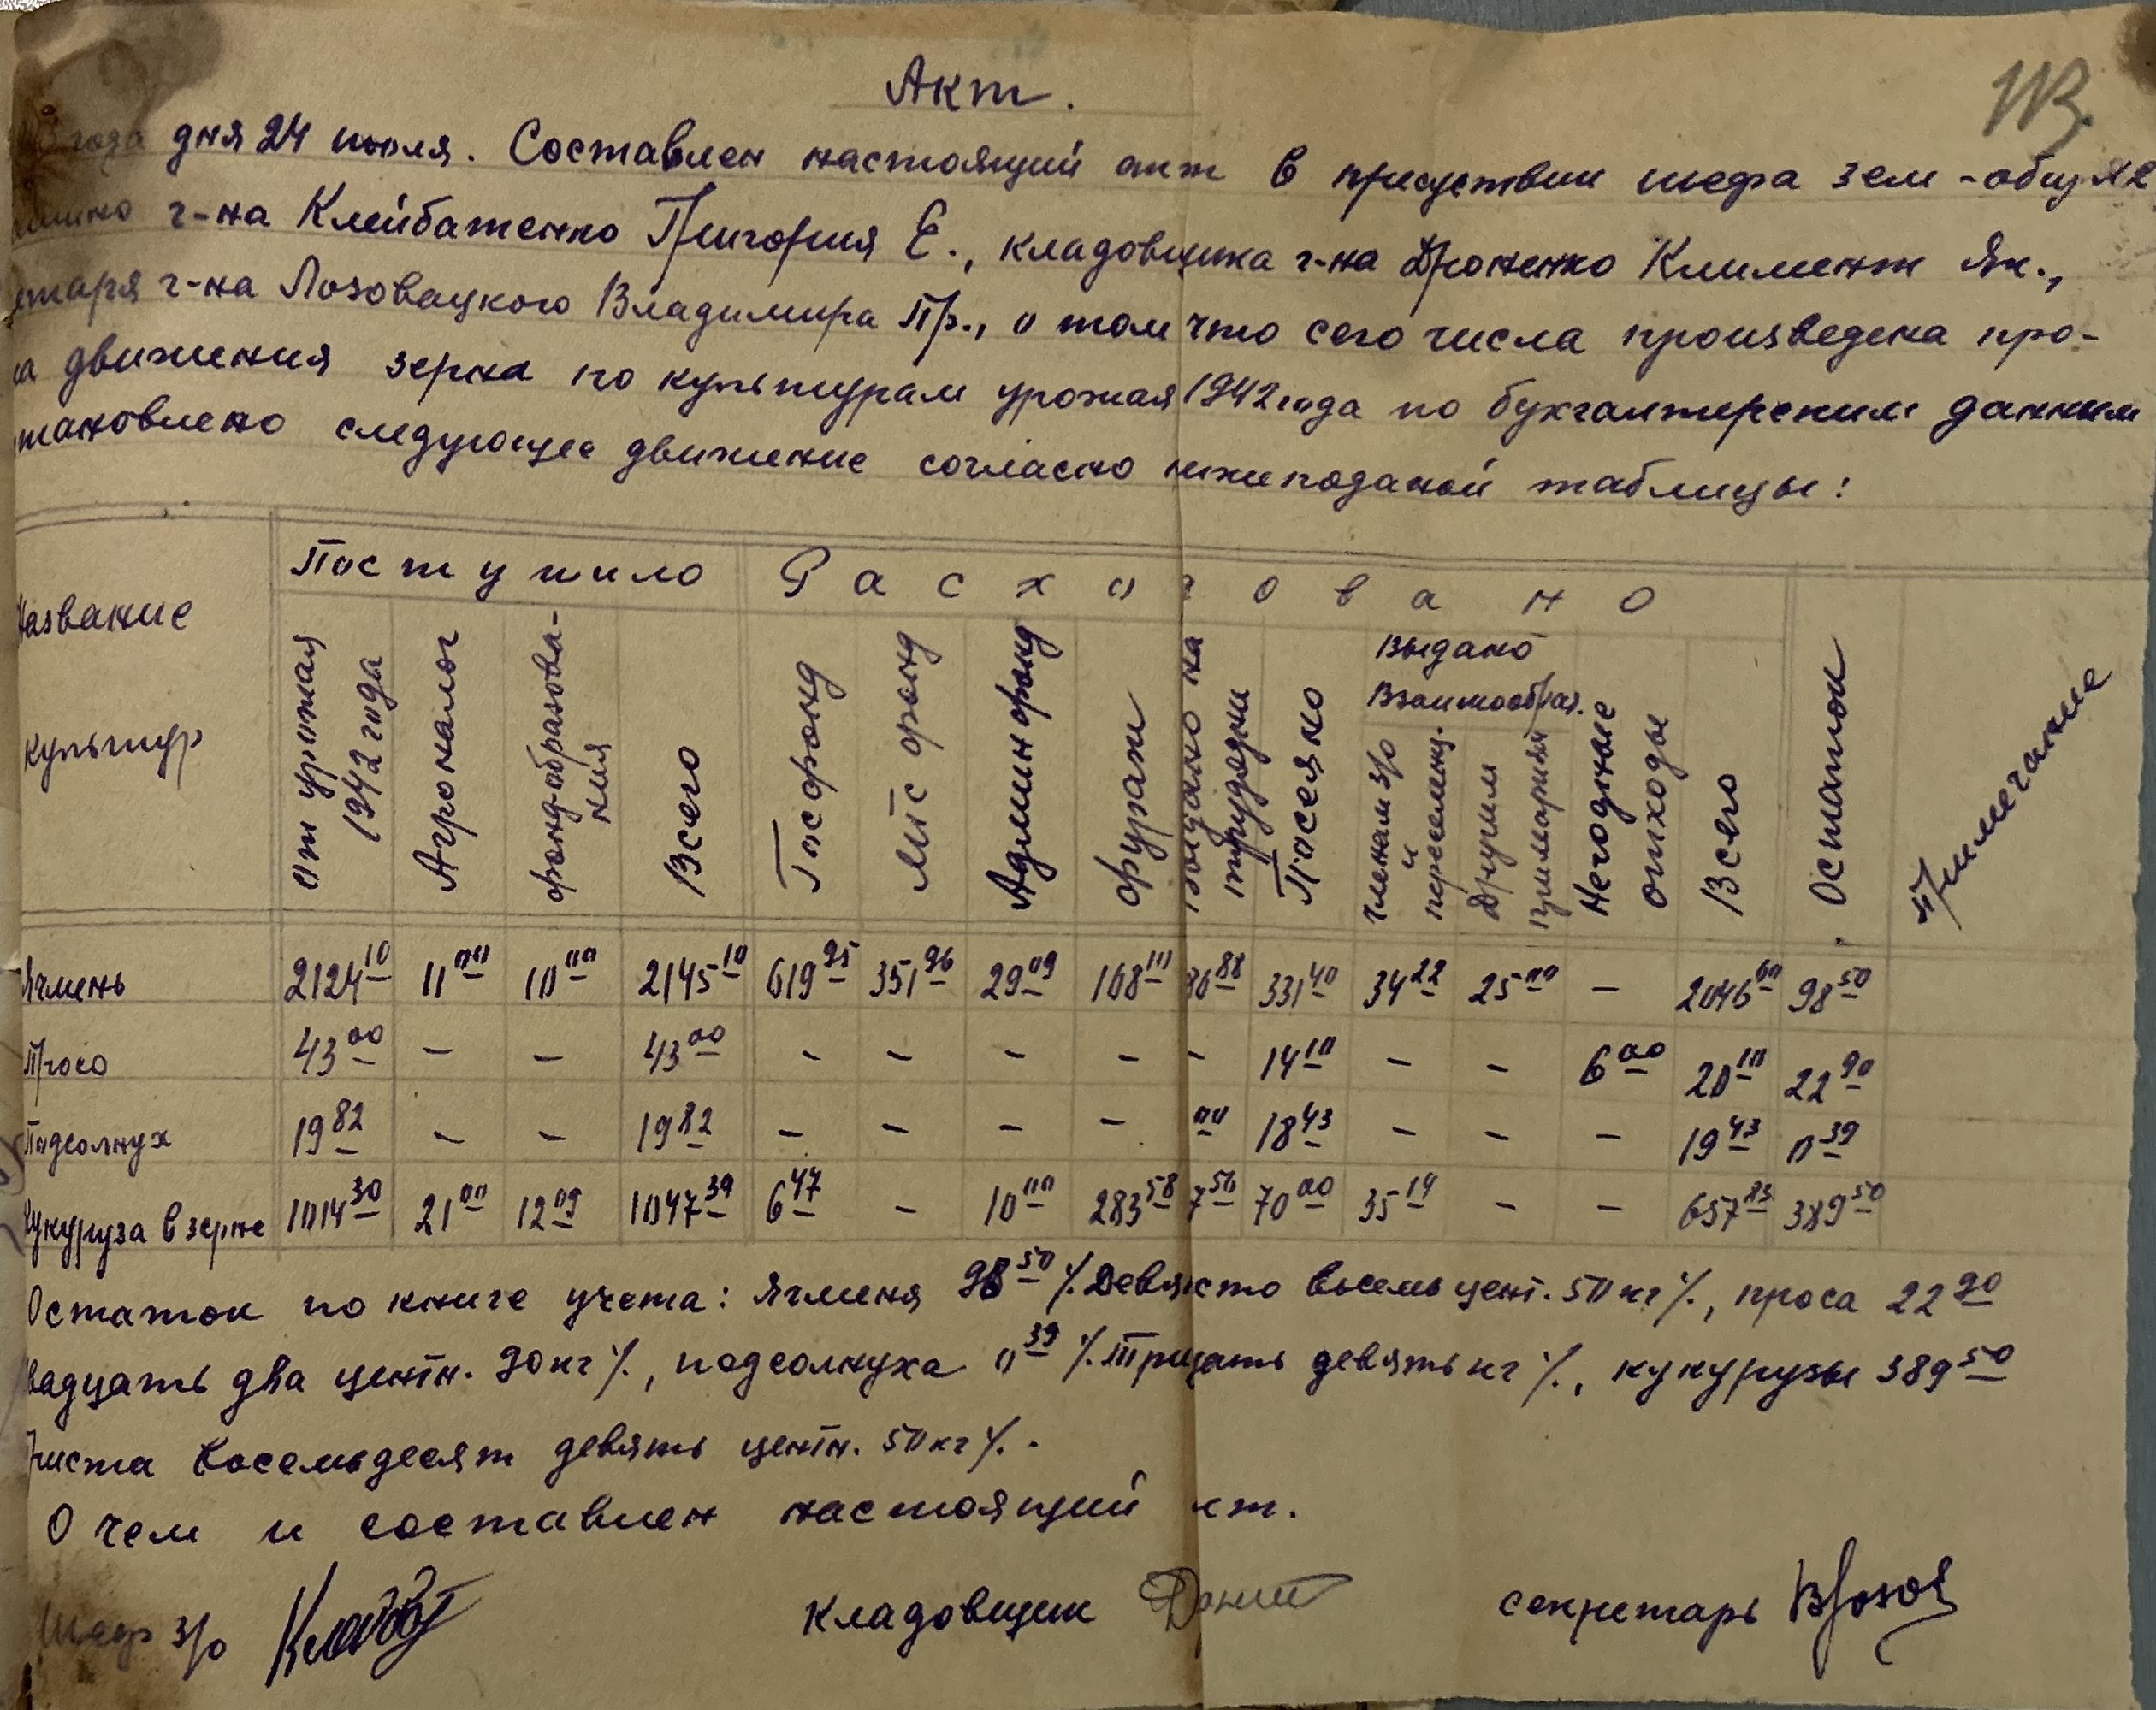 Акт.
года дня 24 июля. Составлен настоящий акт в присуствии шефа зем-общ
г-на Клейбатенко Григория Е., кладовщика г-на Дроненко Климент Як.,
етаря г-на Лозовацкого Владимира Пр., о том что сего числа произведена про-
ка движения зерна по культурам урожая 1942 года по бухгалтерским данным
тановлено следующее движение согласно нижеподаной таблицы:
Название культур | Поступило | Расходовано | Остаток | Примечание
От урожая 1942 года | Агроналог | фонд-образования | Всего | Госфонд | МТС фонд | Админ фонд | фураж | Выдано на трудодни | Посеяно | Выдано Взаимообраз. | Негодные отходы | Всего
членам з/о и переселенц. | Другим примариям
Ячмень 2124 10 11 00 10 00 2145 10 619 95 351 96 29 09 168 10 88 331 40 34 22 25 00 – 2046 60 98 50
Просо 43 00 – – 43 00 – – – – – 14 10 – – 6 00 20 10 22 90
Подсолнух 19 82 – – 19 82 – – – – 00 18 43 – – – 19 43 0 39
Кукуруза в зерне 1014 30 21 00 12 09 1047 39 6 47 – 10 00 283 58 7 56 70 00 35 14 – – 657 89 50
Остаток по книге учета: ячменя 98 50 /. Девяносто восемь цент. 50 кг /., проса 22 90
вадцать два центн. 90 кг /., подсолнуха 0 39 /. Трицать девять кг /., кукурузы 389 50
Триста восемьдесят девять центн. 50 кг /..
О чем и составлен настоящий кт.
Шеф з/о Кладовщик секретарь